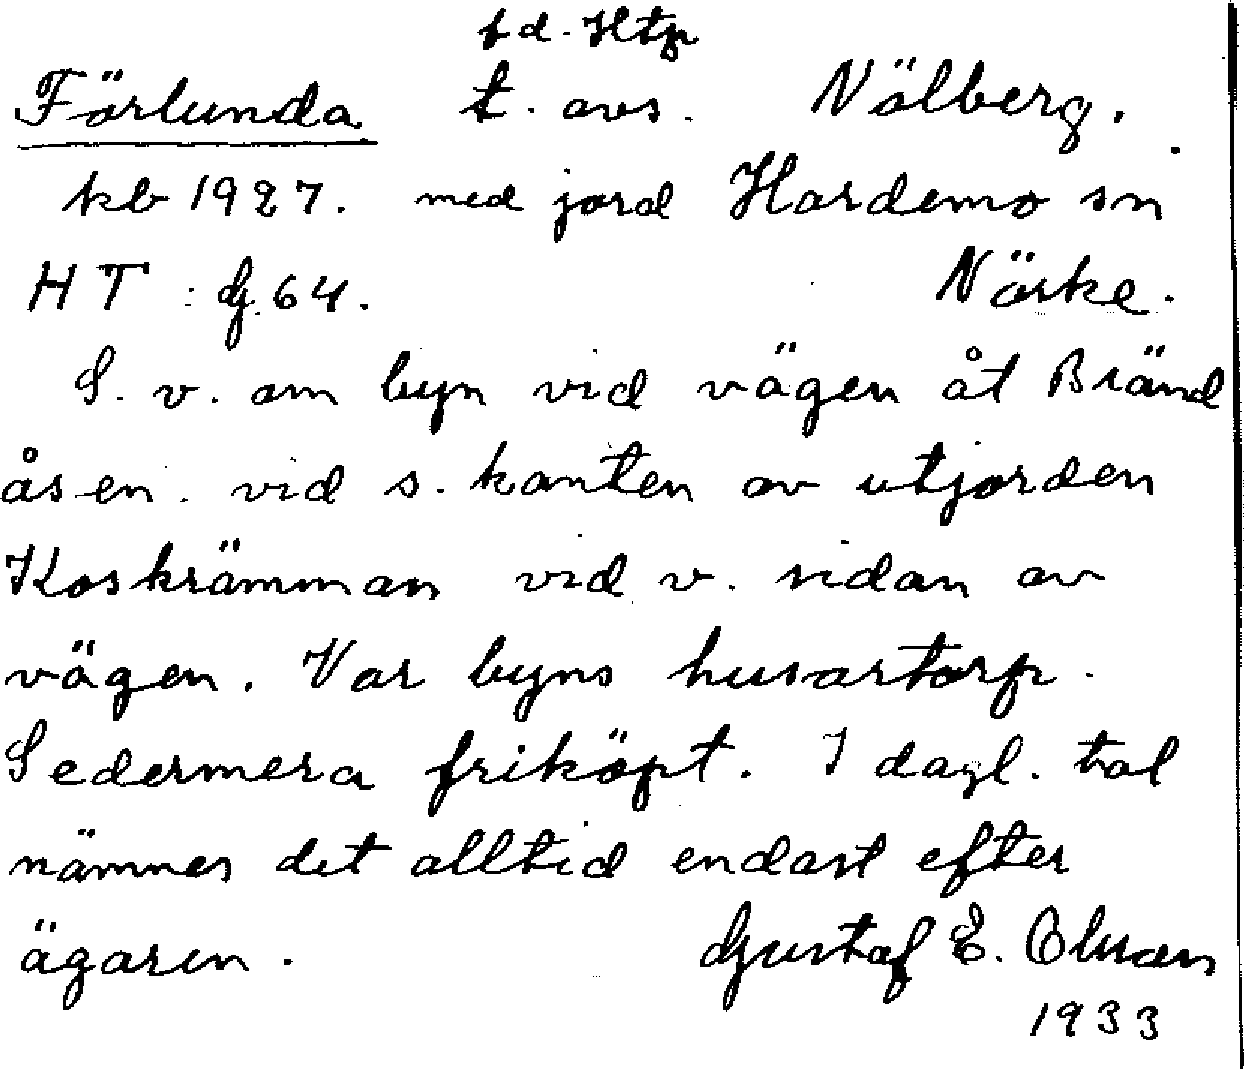 f d. Htp
Förlunda t. avs. Nälberg.
kb 1927. med jord Hardemo sn
HT: dj. 64. Närke.
S. v. om byn vid vägen åt Bränd
åsen. vid s. kanten av utjorden
Koskrämman vid v. sidan av
vägen. Var byns husartorp.
Sedermera friköpt. I dagl. tal
nämnes det alltid endast efter
ägaren. Gustaf E. Olsson
1933